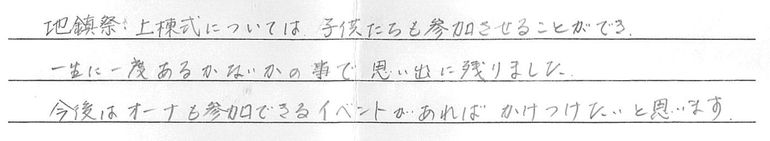 地鎮祭・上棟式については、子供たちも参加させることができ、
一生に一度あるかないかの事で思い出に残りました。
今後はオーナも参加できるイベントがあればかけつけたいと思います。